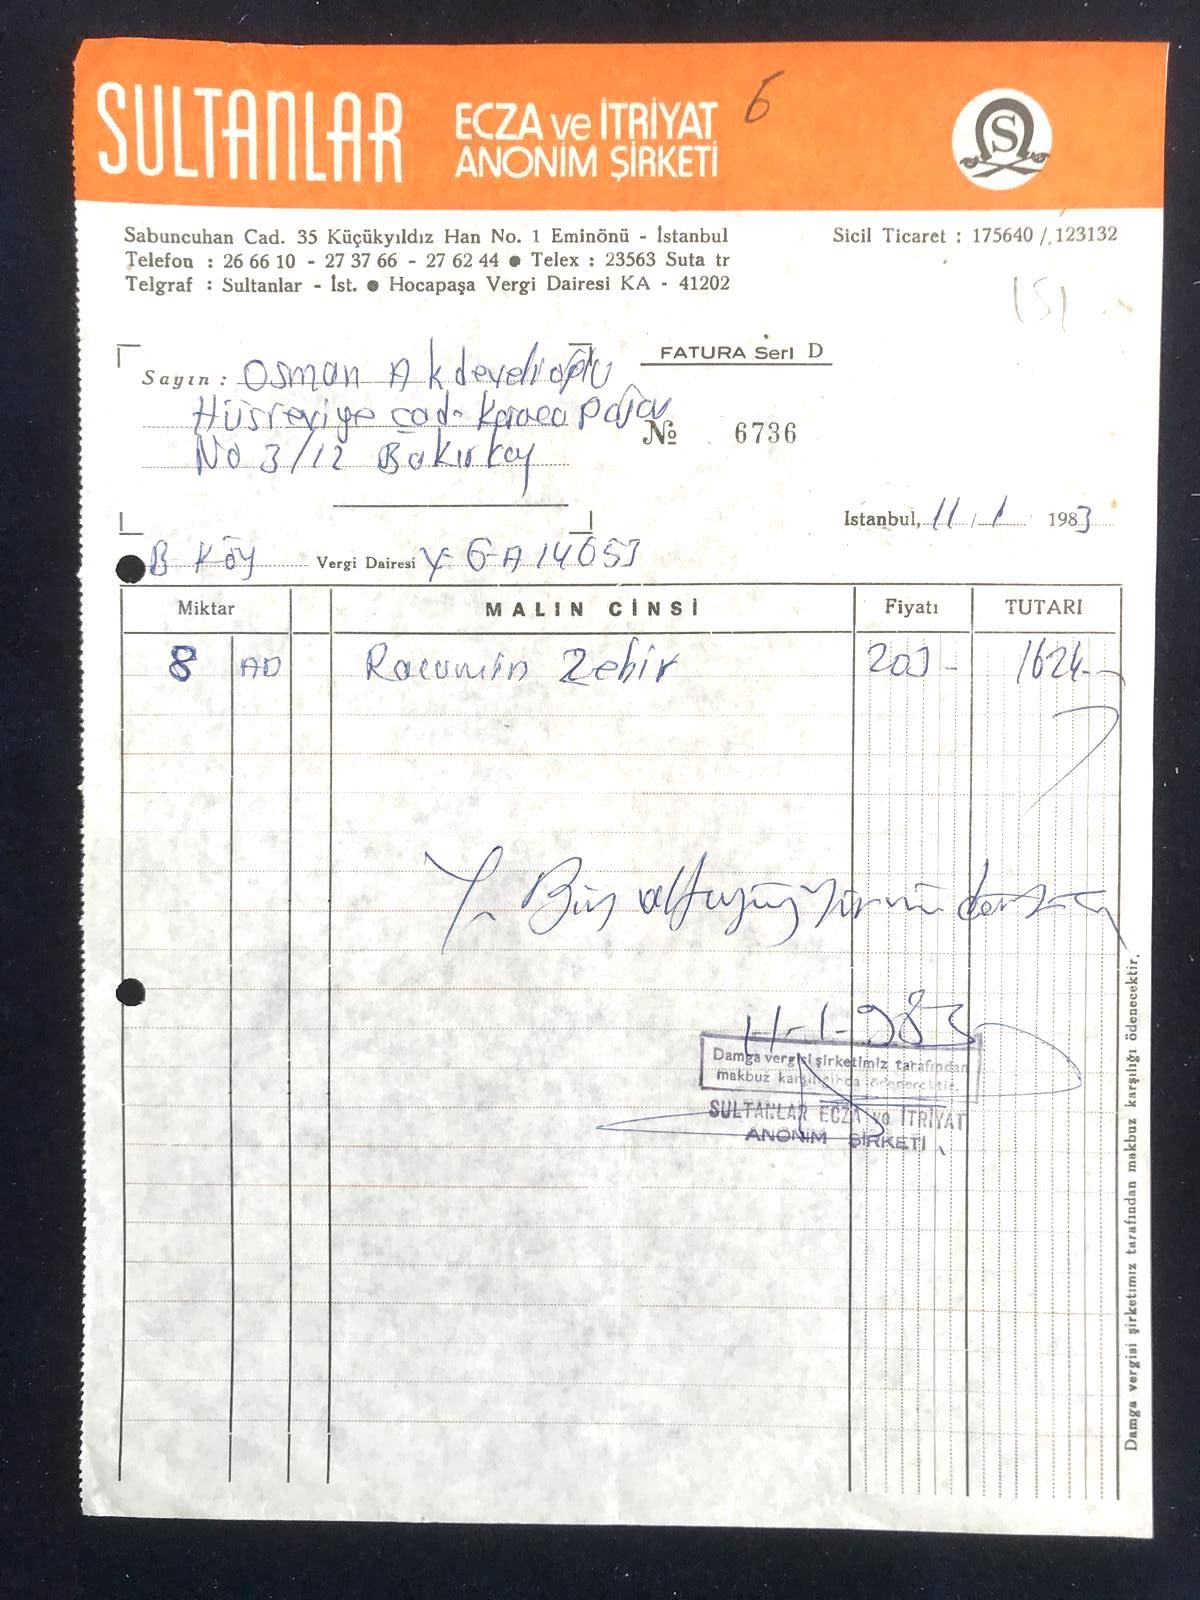 SULTANLAR
ECZA ve İTRİYAT
ANONİM ŞİRKETİ
6
S
Sabuncuhan Cad. 35 Küçükyıldız Han No. 1 Eminönü - İstanbul
Sicil Ticaret : 175640 / 123132
Telefon : 26 66 10 - 27 37 66 - 27 62 44 ● Telex : 23563 Suta tr
Telgraf : Sultanlar - İst. ● Hocapaşa Vergi Dairesi KA - 41202
FATURA Seri D
Sayın : Osman Akdevelioğlu
Hüsreviye cad. Karaca Pasajı
No 3/12 Bakırköy
№ 6736
Istanbul, 11 / 1 1983
B Köy Vergi Dairesi
Miktar MALIN CİNSİ Fiyatı TUTARI
8 AD Racumin Zehir 203 - 1624.-
Y. Bin altıyüz yirmi dört
11-1-983
Damga vergisi şirketimiz tarafından
makbuz karşılığında ödenecektir.
SULTANLAR ECZA ve İTRİYAT
ANONİM ŞİRKETİ
Damga vergisi şirketimiz tarafından makbuz karşılığı ödenecektir.